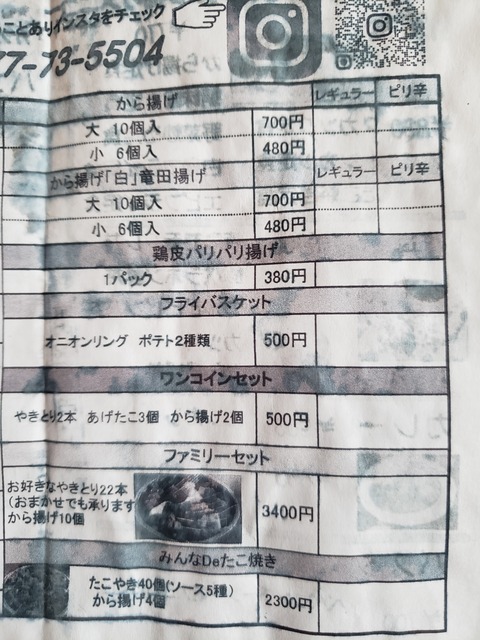 ことありインスタをチェック
77-73-5504
から揚げ レギュラー ピリ辛
大 10個入 700円
小 6個入 480円
から揚げ「白」竜田揚げ レギュラー ピリ辛
大 10個入 700円
小 6個入 480円
鶏皮パリパリ揚げ
1パック 380円
フライバスケット
オニオンリング ポテト2種類 500円
ワンコインセット
やきとり2本 あげたこ3個 から揚げ2個 500円
ファミリーセット
お好きなやきとり22本
(おまかせでも承ります
から揚げ10個 3400円
みんなDeたこ焼き
たこやき40個(ソース5種)
から揚げ4個 2300円